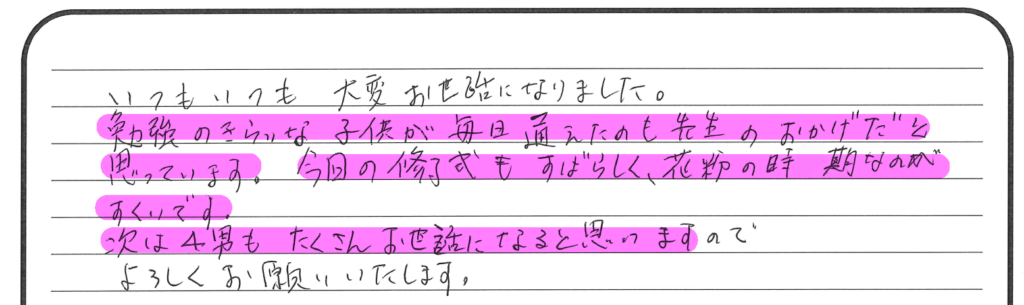 いつもいつも 大変お世話になりました。
勉強のきらいな子供が毎日通えたのも先生のおかげだと
思っています。今回の修了式もすばらしく、花粉の時期なのが
すくいです。
次は4男もたくさんお世話になると思いますので
よろしくお願いいたします。